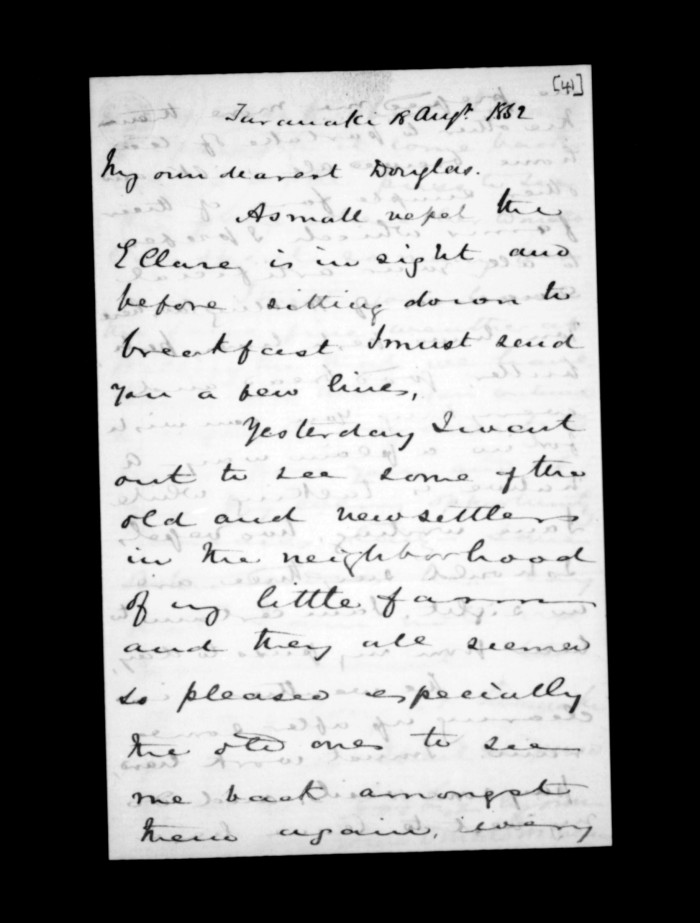 [4]
Taranaki 18 Augt. 1862
My own dearest Douglas.
A small vessel the
Ellare, is in sight and
before sitting down to
breakfast I must send
you a few lines,
Yesterday I went
out to see some of the
old and new settlers
in the neighborhood
of my little farm
and they all seemed
so pleased especially
the old ones to see
me back amongst
them again,